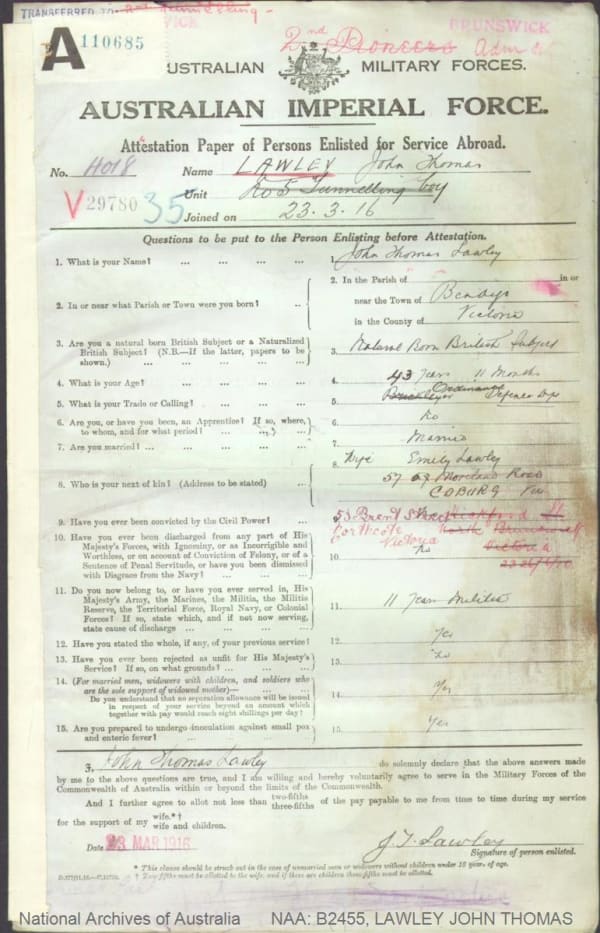 TRANSFERRED TO
2nd Pioneers
BRUNSWICK
A 110685
AUSTRALIAN MILITARY FORCES.
AUSTRALIAN IMPERIAL FORCE.
Attestation Paper of Persons Enlisted for Service Abroad.
No. 4018 Name LAWLEY John Thomas
V29780 35 Unit No 5 Tunnelling Coy
Joined on 23.3.16
Questions to be put to the Person Enlisting before Attestation.
1. What is your Name? ... ... ... ... 1. John Thomas Lawley
2. In or near what Parish or Town were you born? .. 2. In the Parish of in or
near the Town of
in the County of Victoria
3. Are you a natural born British Subject or a Naturalized
British Subject? (N.B.—If the latter, papers to be
shown.) ... ... ... ... 3. Natural Born British Subject
4. What is your Age? ... ... ... ... 4. 43 years 11 Months
5. What is your Trade or Calling? ... ... ... 5. Bricklayer Ordinance Defence
6. Are you, or have you been, an Apprentice? If so, where,
to whom, and for what period? ... ... 6. No
7. Are you married? ... ... ... ... 7. Married
8. Who is your next of kin? (Address to be stated) ... 8. Wife Emily Lawley
57 Moreland Road
COBURG Vic
53 Brent Street
Northcote
Victoria
9. Have you ever been convicted by the Civil Power? ...
10. Have you ever been discharged from any part of His
Majesty's Forces, with Ignominy, or as Incorrigible and
Worthless, or on account of Conviction of Felony, or of a
Sentence of Penal Servitude, or have you been dismissed
with Disgrace from the Navy? ... ... 10. No
11. Do you now belong to, or have you ever served in, His
Majesty's Army, the Marines, the Militia, the Militia
Reserve, the Territorial Force, Royal Navy, or Colonial
Forces? If so, state which, and if not now serving,
state cause of discharge ... ... ... 11. 11 years Militia
12. Have you stated the whole, if any, of your previous service? 12. Yes
13. Have you ever been rejected as unfit for His Majesty's
Service? If so, on what grounds? ... ... 13. No
14. (For married men, widowers with children, and soldiers who
are the sole support of widowed mother)— ... ...
Do you understand that no separation allowance will be issued
in respect of your service beyond an amount which
together with pay would reach eight shillings per day? 14. Yes
15. Are you prepared to undergo inoculation against small pox
and enteric fever? ... ... ... ... 15. Yes
I, John Thomas Lawley do solemnly declare that the above answers made
by me to the above questions are true, and I am willing and hereby voluntarily agree to serve in the Military Forces of the
Commonwealth of Australia within or beyond the limits of the Commonwealth.
And I further agree to allot not less than two-fifths three-fifths of the pay payable to me from time to time during my service
for the support of my wife.*† wife and children.
Date 23 MAR 1916 J. T. Lawley
Signature of person enlisted.
* This clause should be struck out in the case of unmarried men or widowers without children under 18 year. of age.
† Two fifths must be allotted to the wife, and if there are children three fifths must be allotted.
National Archives of Australia NAA: B2455, LAWLEY JOHN THOMAS